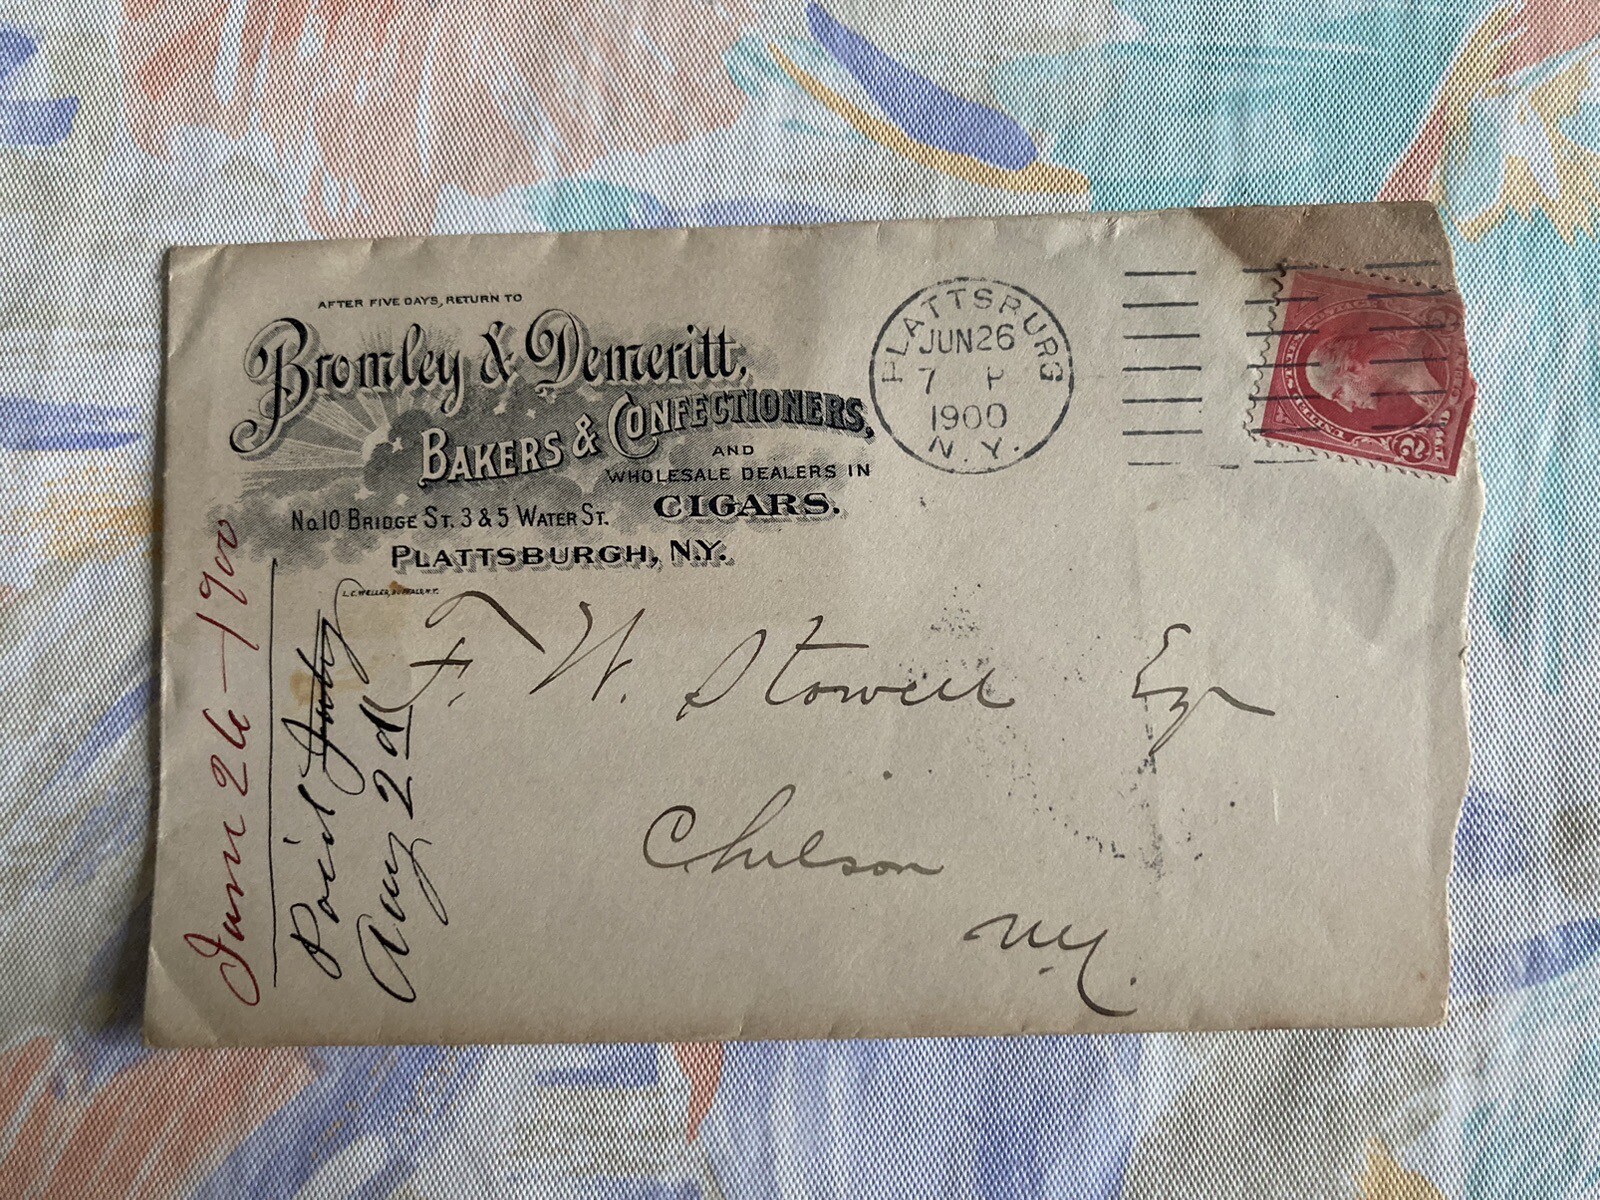 AFTER FIVE DAYS, RETURN TO
Bromley & Demeritt,
BAKERS & CONFECTIONERS,
AND
WHOLESALE DEALERS IN
CIGARS.
No10 BRIDGE ST. 3 & 5 WATER ST.
PLATTSBURGH, N.Y.
L.C. WELLER, BUFFALO, N.Y.
PLATTSBURG
JUN 26
7 P
1900
N.Y.
F. W. Stowell Esq
Chilson
N.Y.
June 26-1900
Paid July
Aug 2d